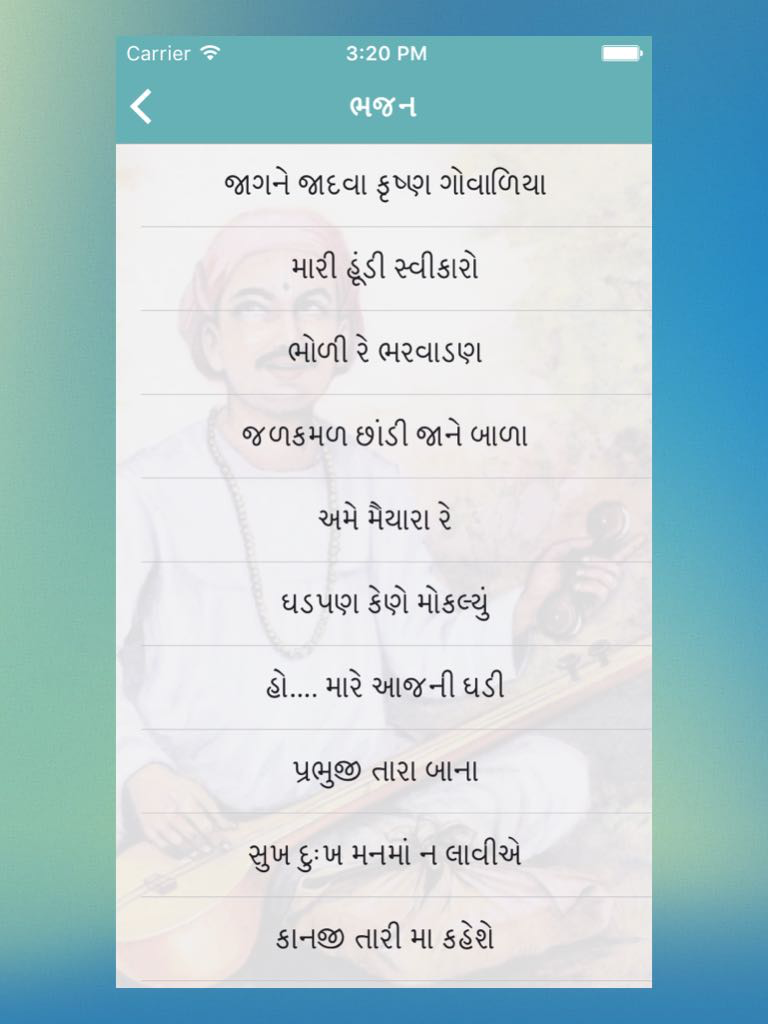 Carrier 3:20 PM
ભજન
જાગને જાદવા કૃષ્ણ ગોવાળિયા
મારી હૂંડી સ્વીકારો
ભોળી રે ભરવાડણ
જળકમળ છાંડી જાને બાળા
અમે મૈયારા રે
ઘડપણ કેણે મોકલ્યું
હો.... મારે આજની ઘડી
પ્રભુજી તારા બાના
સુખ દુઃખ મનમાં ન લાવીએ
કાનજી તારી મા કહેશે